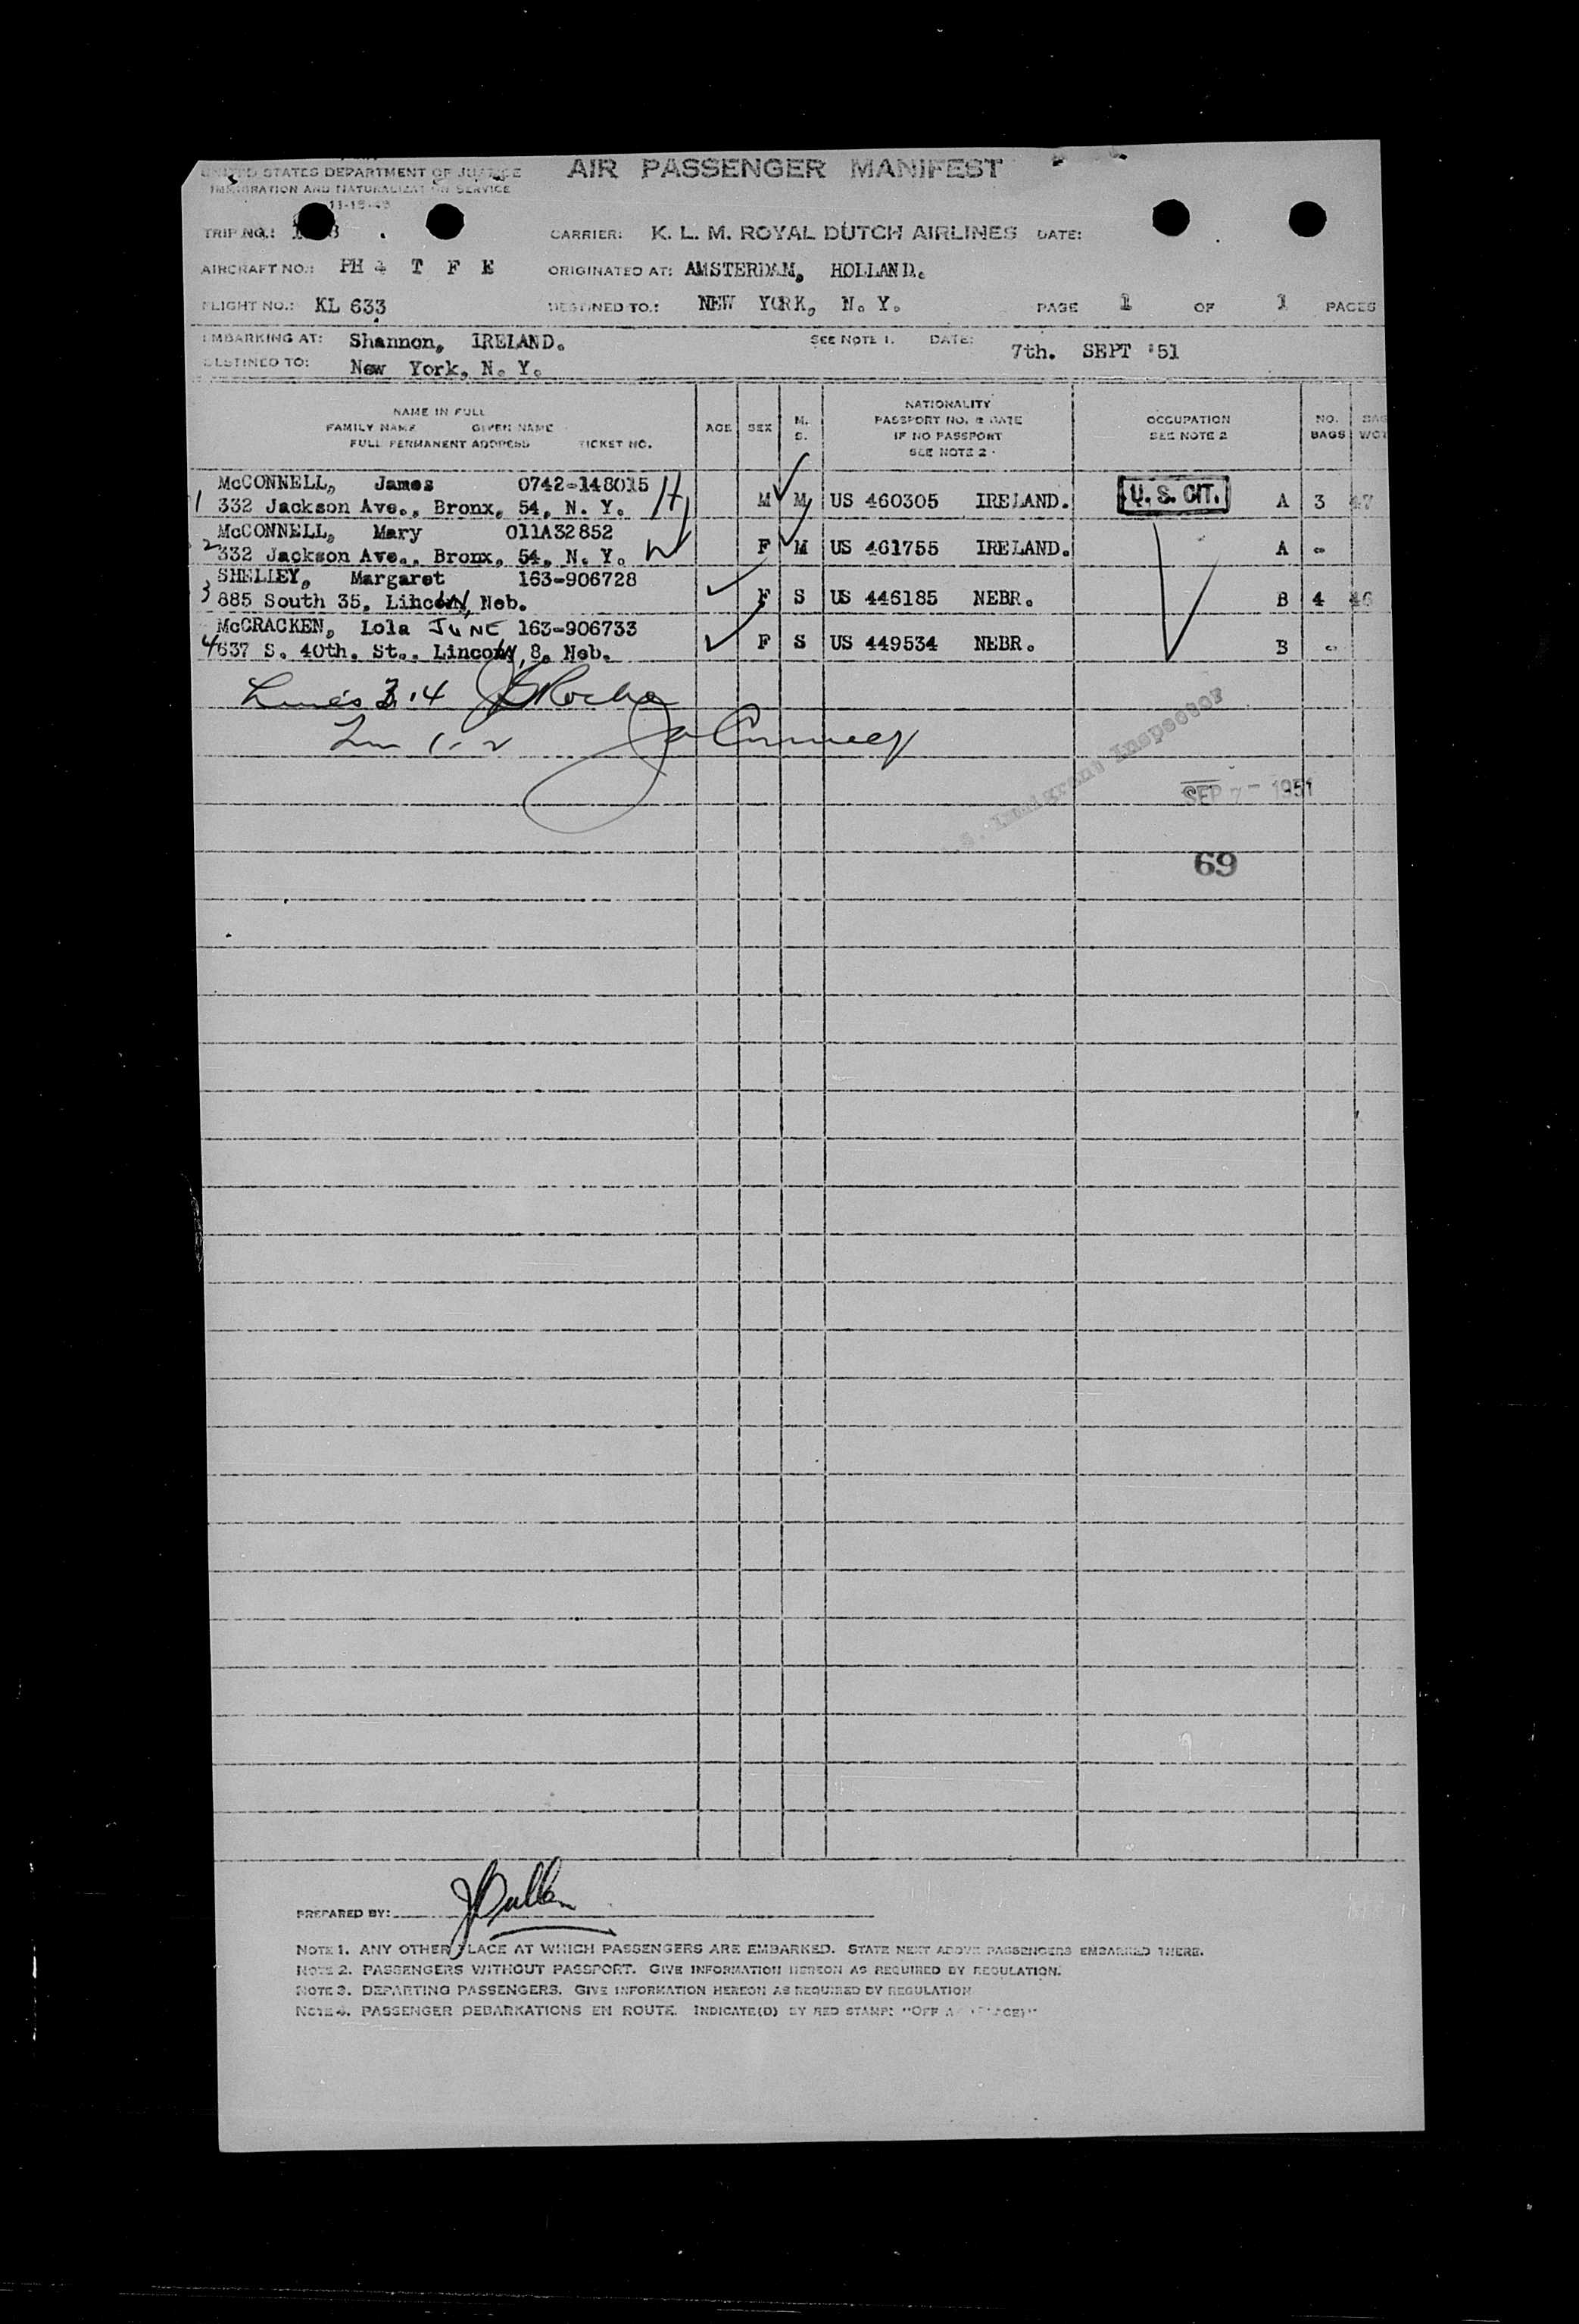 UNITED STATES DEPARTMENT OF JUSTICE
AIR PASSENGER MANIFEST
IMMIGRATION AND NATURALIZATION SERVICE
11-15-48
TRIP NO.:
CARRIER: K. L. M. ROYAL DUTCH AIRLINES DATE:
AIRCRAFT NO.: PH - T F E ORIGINATED AT: AMSTERDAM, HOLLAND.
FLIGHT NO.: KL 633 DESTINED TO.: NEW YORK, N. Y. PAGE 1 OF 1 PAGES
EMBARKING AT: Shannon, IRELAND. SEE NOTE 1. DATE: 7th. SEPT '51
DESTINED TO: New York, N. Y.
NAME IN FULL
FAMILY NAME GIVEN NAME
FULL PERMANENT ADDRESS TICKET NO.
AGE
SEX
M. S.
NATIONALITY
PASSPORT NO. & DATE
IF NO PASSPORT
SEE NOTE 2
OCCUPATION
SEE NOTE 2
NO. BAGS
BAG WGT
McCONNELL, James 0742-148015 H
1 332 Jackson Ave., Bronx, 54, N. Y. M M US 460305 IRELAND. U. S. CIT. A 3 47
McCONNELL, Mary 011A32852
2 332 Jackson Ave., Bronx, 54, N. Y. W F M US 461755 IRELAND. A -
SHELLEY, Margaret 163-906728
3 885 South 35, Lincoln, Neb. F S US 446185 NEBR. B 4 46
McCRACKEN, Lola JUNE 163-906733
4 637 S. 40th. St., Lincoln, 8, Neb. F S US 449534 NEBR. B -
Lines 3.4
1-2
U.S. Immigrant Inspector
SEP 7 - 1951
69
PREPARED BY:
NOTE 1. ANY OTHER PLACE AT WHICH PASSENGERS ARE EMBARKED. STATE NEXT ABOVE PASSENGERS EMBARKED THERE.
NOTE 2. PASSENGERS WITHOUT PASSPORT. GIVE INFORMATION HEREON AS REQUIRED BY REGULATION.
NOTE 3. DEPARTING PASSENGERS. GIVE INFORMATION HEREON AS REQUIRED BY REGULATION
NOTE 4. PASSENGER DEBARKATIONS EN ROUTE. INDICATE(D) BY RED STAMP: "OFF AT (PLACE)"